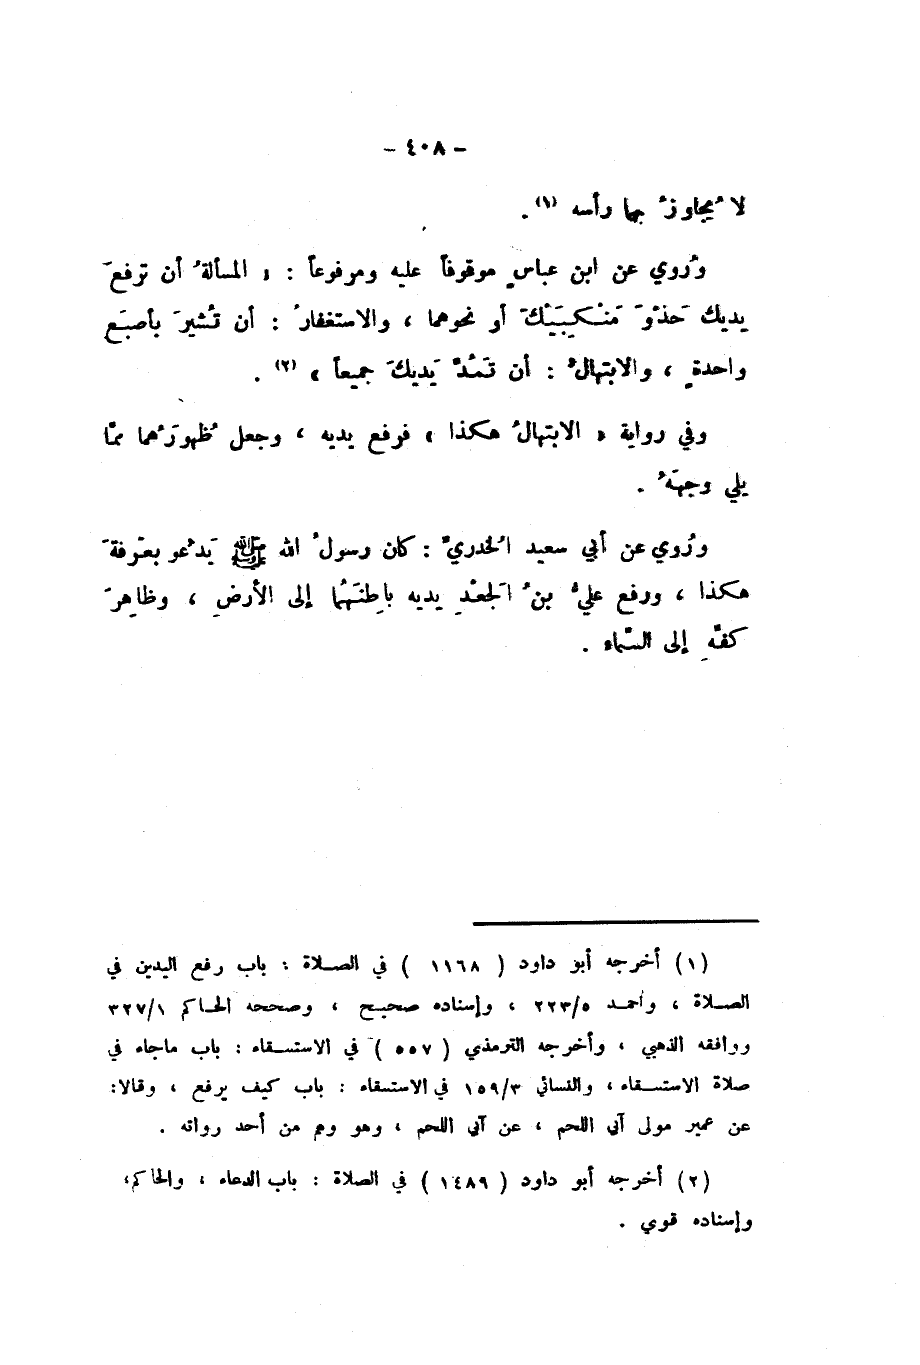 - ٤٠٨ -
لا يُجاوزُ بهما رأسه (١) .
ورُوي عن ابن عباسٍ موقوفاً عليه ومرفوعاً : « المسألةُ أن ترفعَ
يديك حَذْوَ مَنْكِبَيْكَ أو نحوهما ، والاستغفارُ : أن تُشيرَ بأصبَعٍ
واحدةٍ ، والابتهالُ : أن تَمُدَّ يَديكَ جميعاً » (٢) .
وفي رواية « الابتهالُ هكذا » فرفع يديه ، وجعل ظُهورَهُما ممّا
يلي وجهَهُ .
ورُوي عن أبي سعيد الخُدريِّ : كان رسولُ الله ﷺ يَدْعو بعَرفةَ
هكذا ، ورفع عليُّ بنُ الجَعْدِ يديه باطنَهُما إلى الأرضِ ، وظاهِرَ
كفِّهِ إلى السَّماء .
(١) أخرجه أبو داود ( ١١٦٨ ) في الصلاة : باب رفع اليدين في
الصلاة ، وأحمد ٢٢٣/٥ ، وإسناده صحيح ، وصححه الحاكم ٣٢٧/١
ووافقه الذهبي ، وأخرجه الترمذي ( ٥٥٧ ) في الاستسقاء : باب ماجاء في
صلاة الاستسقاء ، والنسائي ١٥٩/٣ في الاستسقاء : باب كيف يرفع ، وقالا :
عن عمير مولى آبي اللحم ، عن آبي اللحم ، وهو وهم من أحد رواته .
(٢) أخرجه أبو داود ( ١٤٨٩ ) في الصلاة : باب الدعاء ، والحاكم ،
وإسناده قوي .